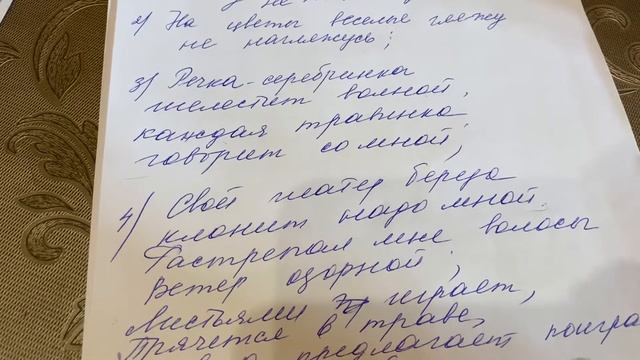 2) На цветы веселые гляжу
не нагляжусь;
3) Речка-серебринка
шелестит волной,
каждая травинка
говорит со мной;
4) Свой шатер береза
клонит надо мной.
Растрепал мне волосы
Ветер озорной;
Листьями играет,
Прячется в траве,
предлагает поигра